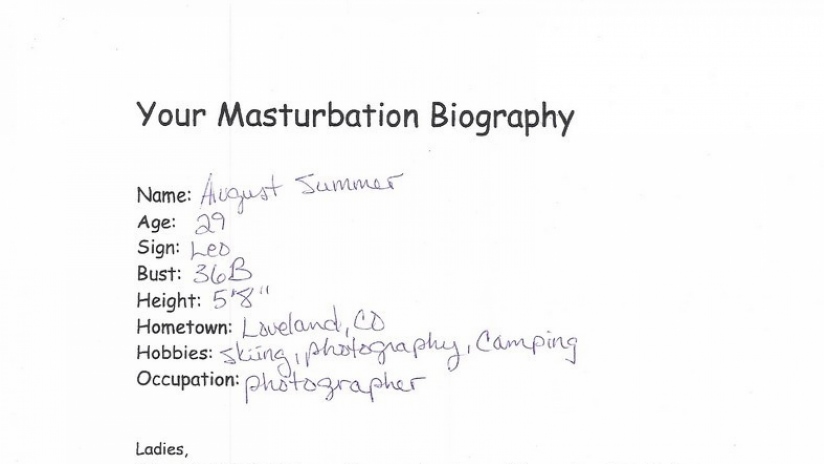 Your Masturbation Biography
Name: August Summer
Age: 29
Sign: Leo
Bust: 36B
Height: 5'8"
Hometown: Loveland, CO
Hobbies: skiing, photography, Camping
Occupation: photographer
Ladies,